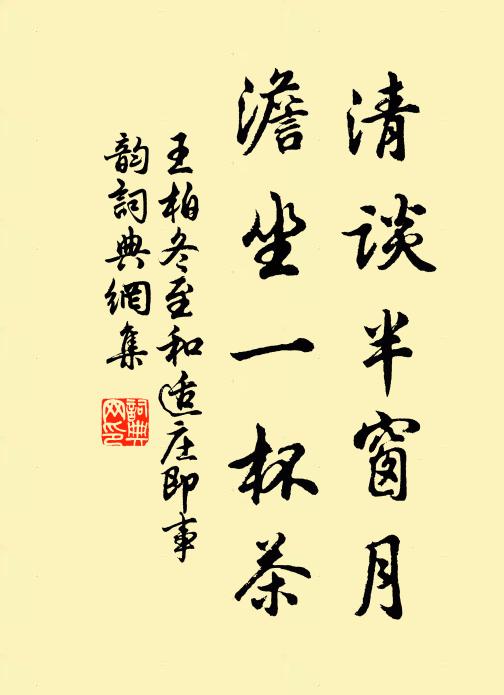 清談半窗月
澹坐一杯茶
王柏冬至和适庄即事
韵詞典網集
詞典網印